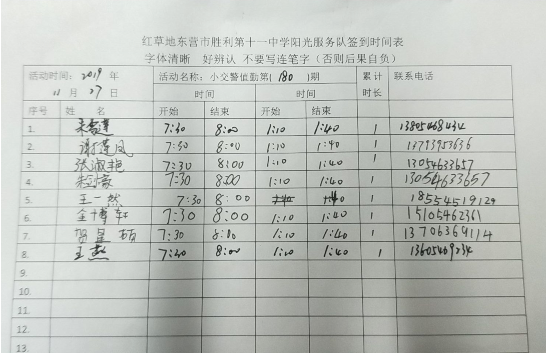 红草地东营市胜利第十一中学阳光服务队签到时间表
字体清晰 好辨认 不要写连笔字（否则后果自负）
活动时间：2019 年 活动名称：小交警值勤第（180）期 累计时长 联系电话
11 月 27 日 时间 时间
序号 姓 名 开始 结束 开始 结束
1. 7:30 8:00 1:10 1:40 1
2. 谢莲凤 7:30 8:00 1:10 1:40 1
3. 张淑艳 7:30 8:00 1:10 1:40 1 13054633657
4. 7:30 8:00 1:10 1:40 1 13054633657
5. 王一然 7:30 8:00 1 18554519124
6. 金博轩 7:30 8:00 1:10 1:40 1 15105462361
7. 7:30 8:00 1:10 1:40 1 13706369114
8. 王燕 7:30 8:00 1:10 1:40 1
9.
10.
11.
12.
13.